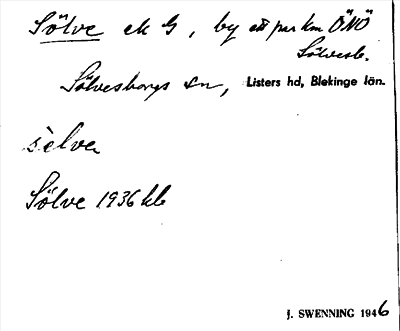 Sölve ek G, by ett par km ÖNÖ
Sölvesb.
Sölvesborgs sn, Listers hd, Blekinge län.
sèlve
Sölve 1936 kb
J. SWENNING 1946